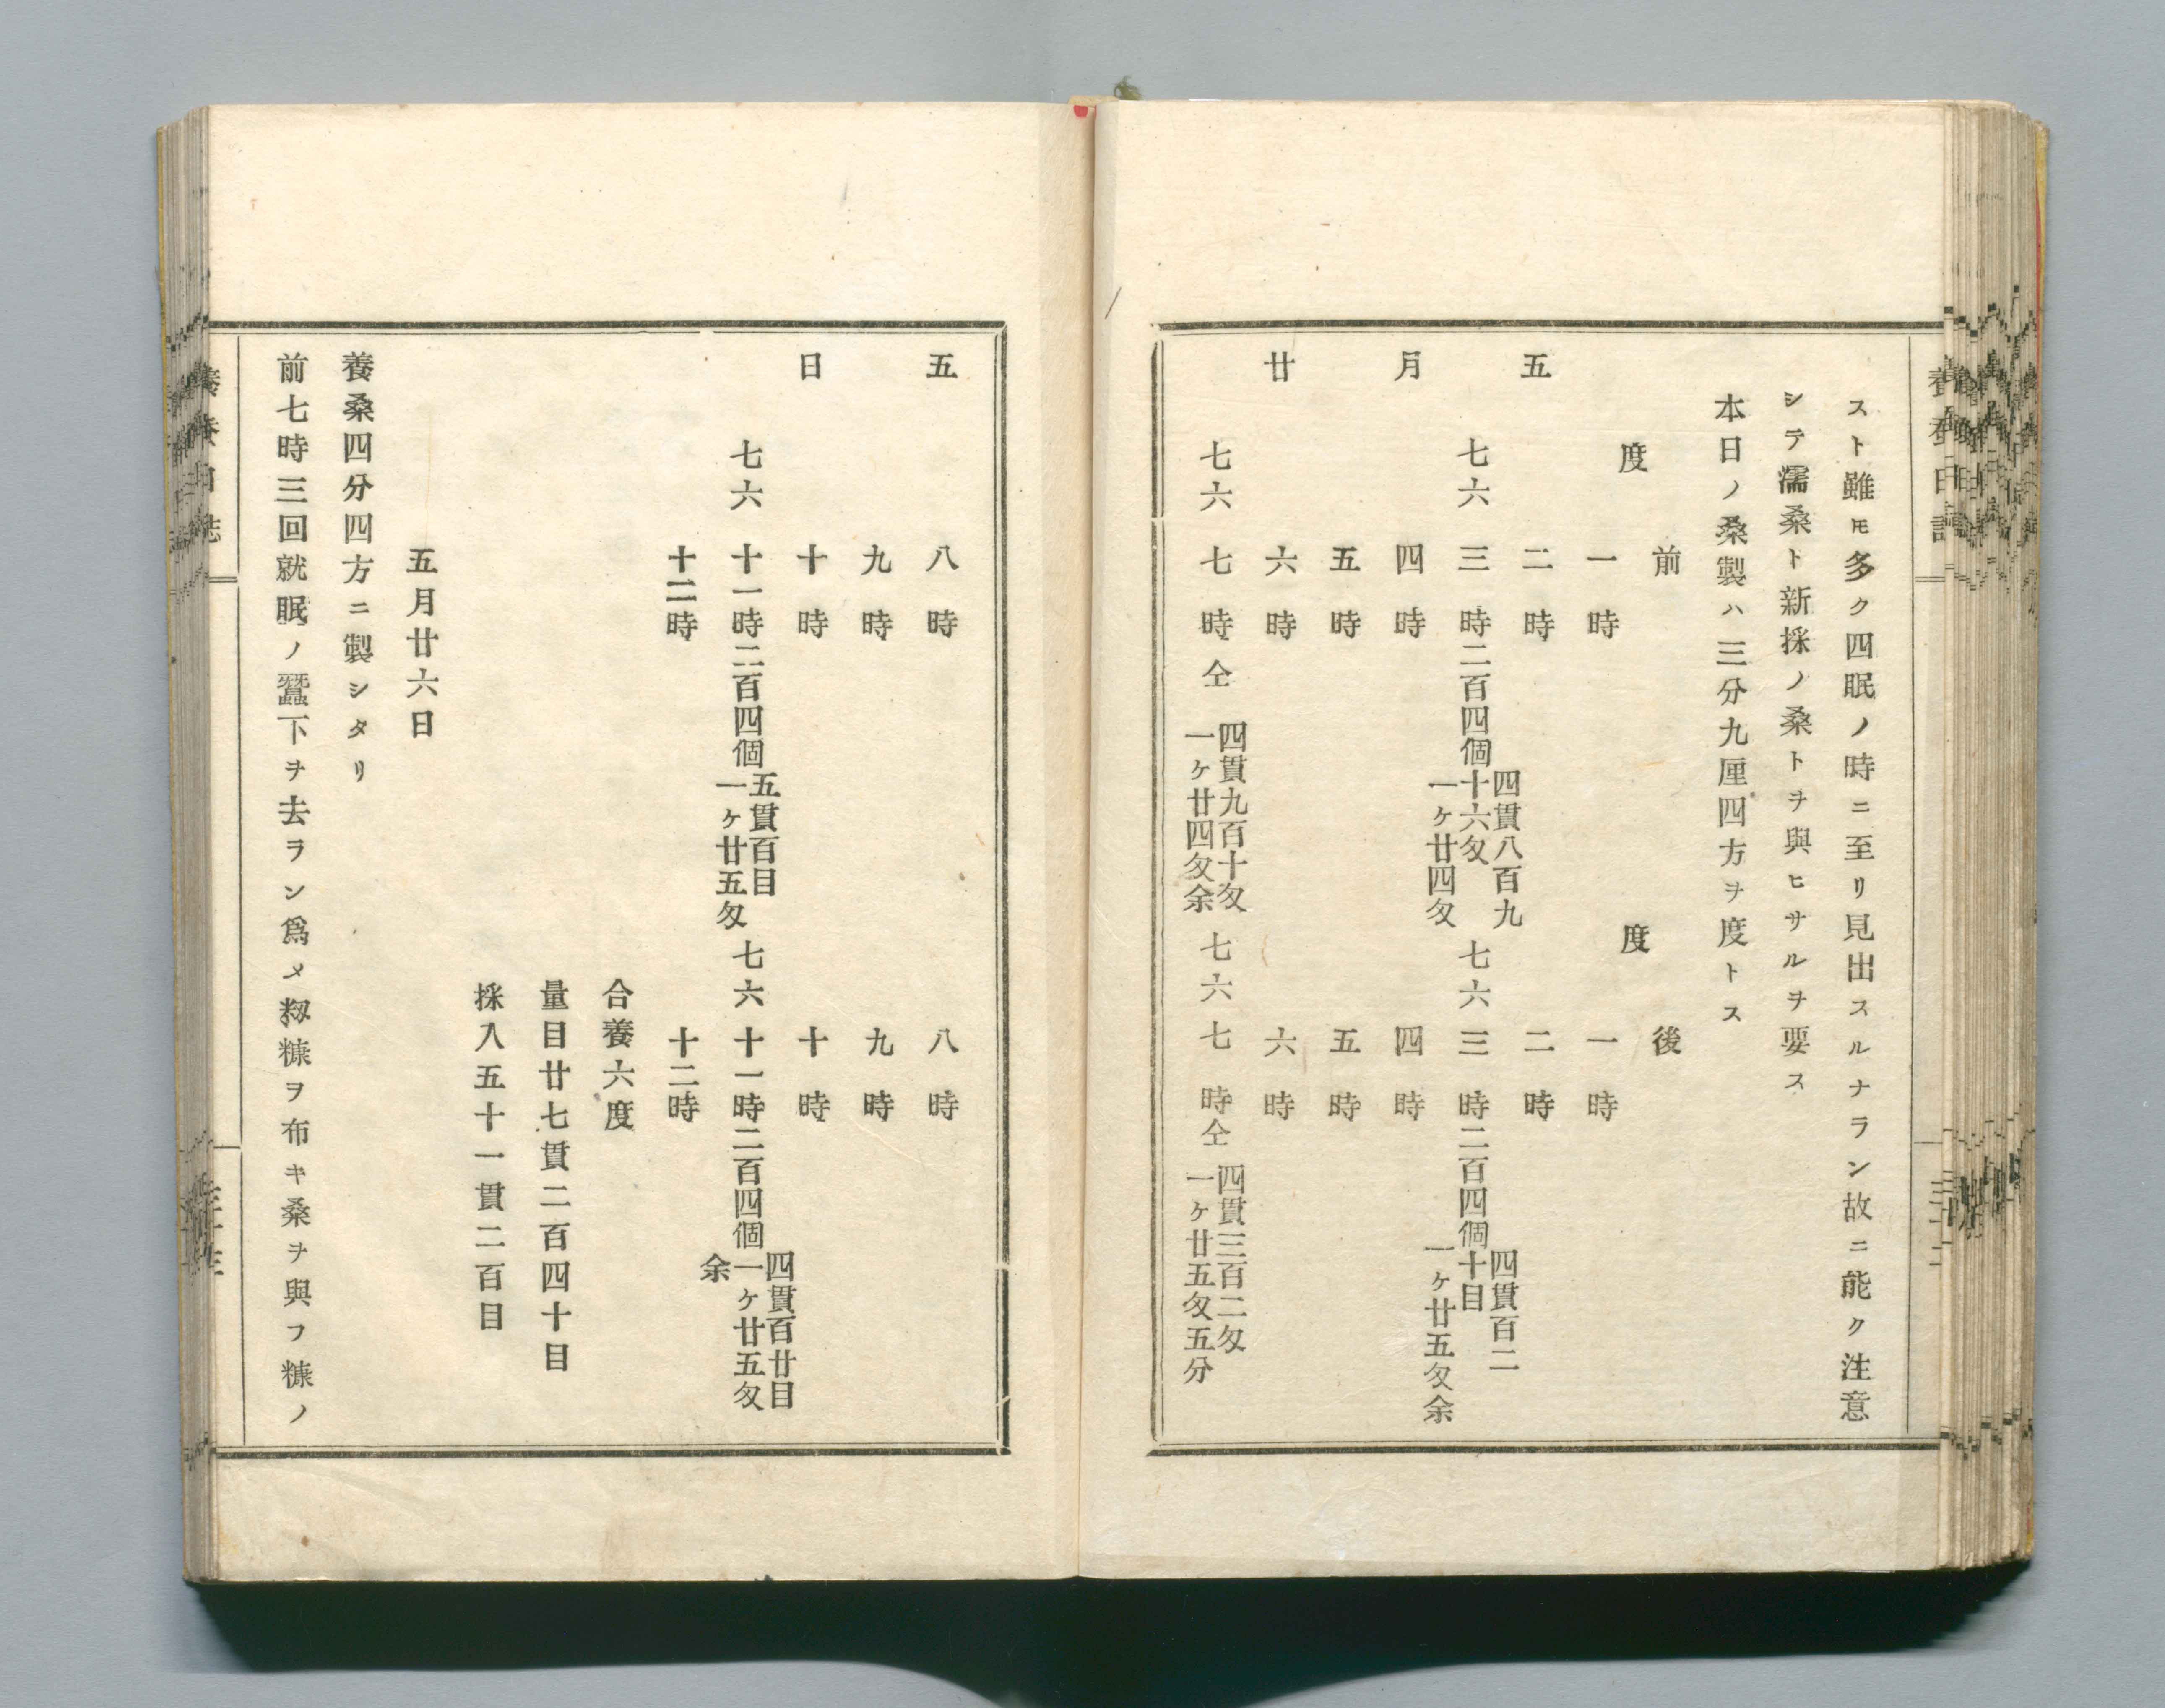 スト雖モ多ク四眠ノ時ニ至リ見出スルナラン故ニ能ク注意
シテ濡桑ト新採ノ桑トヲ與ヒサルヲ要ス
本日ノ桑製ハ三分九厘四方ヲ度トス
前 後
度 度
一時 一時
五 二時 二時
七六 三時二百四個 四貫八百九十六匁 一ヶ廿四匁 七六 三時二百四個 四貫百二十目 一ヶ廿五匁余
月 四時 四時
五時 五時
廿 六時 六時
七六 七時仝 四貫九百十匁 一ヶ廿四匁余 七六 七時仝 四貫三百二匁 一ヶ廿五匁五分
五 八時 八時
九時 九時
日 十時 十時
七六 十一時二百四個 五貫百目 一ヶ廿五匁 七六 十一時二百四個 四貫百廿目 一ヶ廿五匁余
十二時 十二時
合養六度
量目廿七貫二百四十目
採入五十一貫二百目
五月廿六日
養桑四分四方ニ製シタリ
前七時三回就眠ノ蠶下ヲ去ラン爲メ籾糠ヲ布キ桑ヲ與フ糠ノ